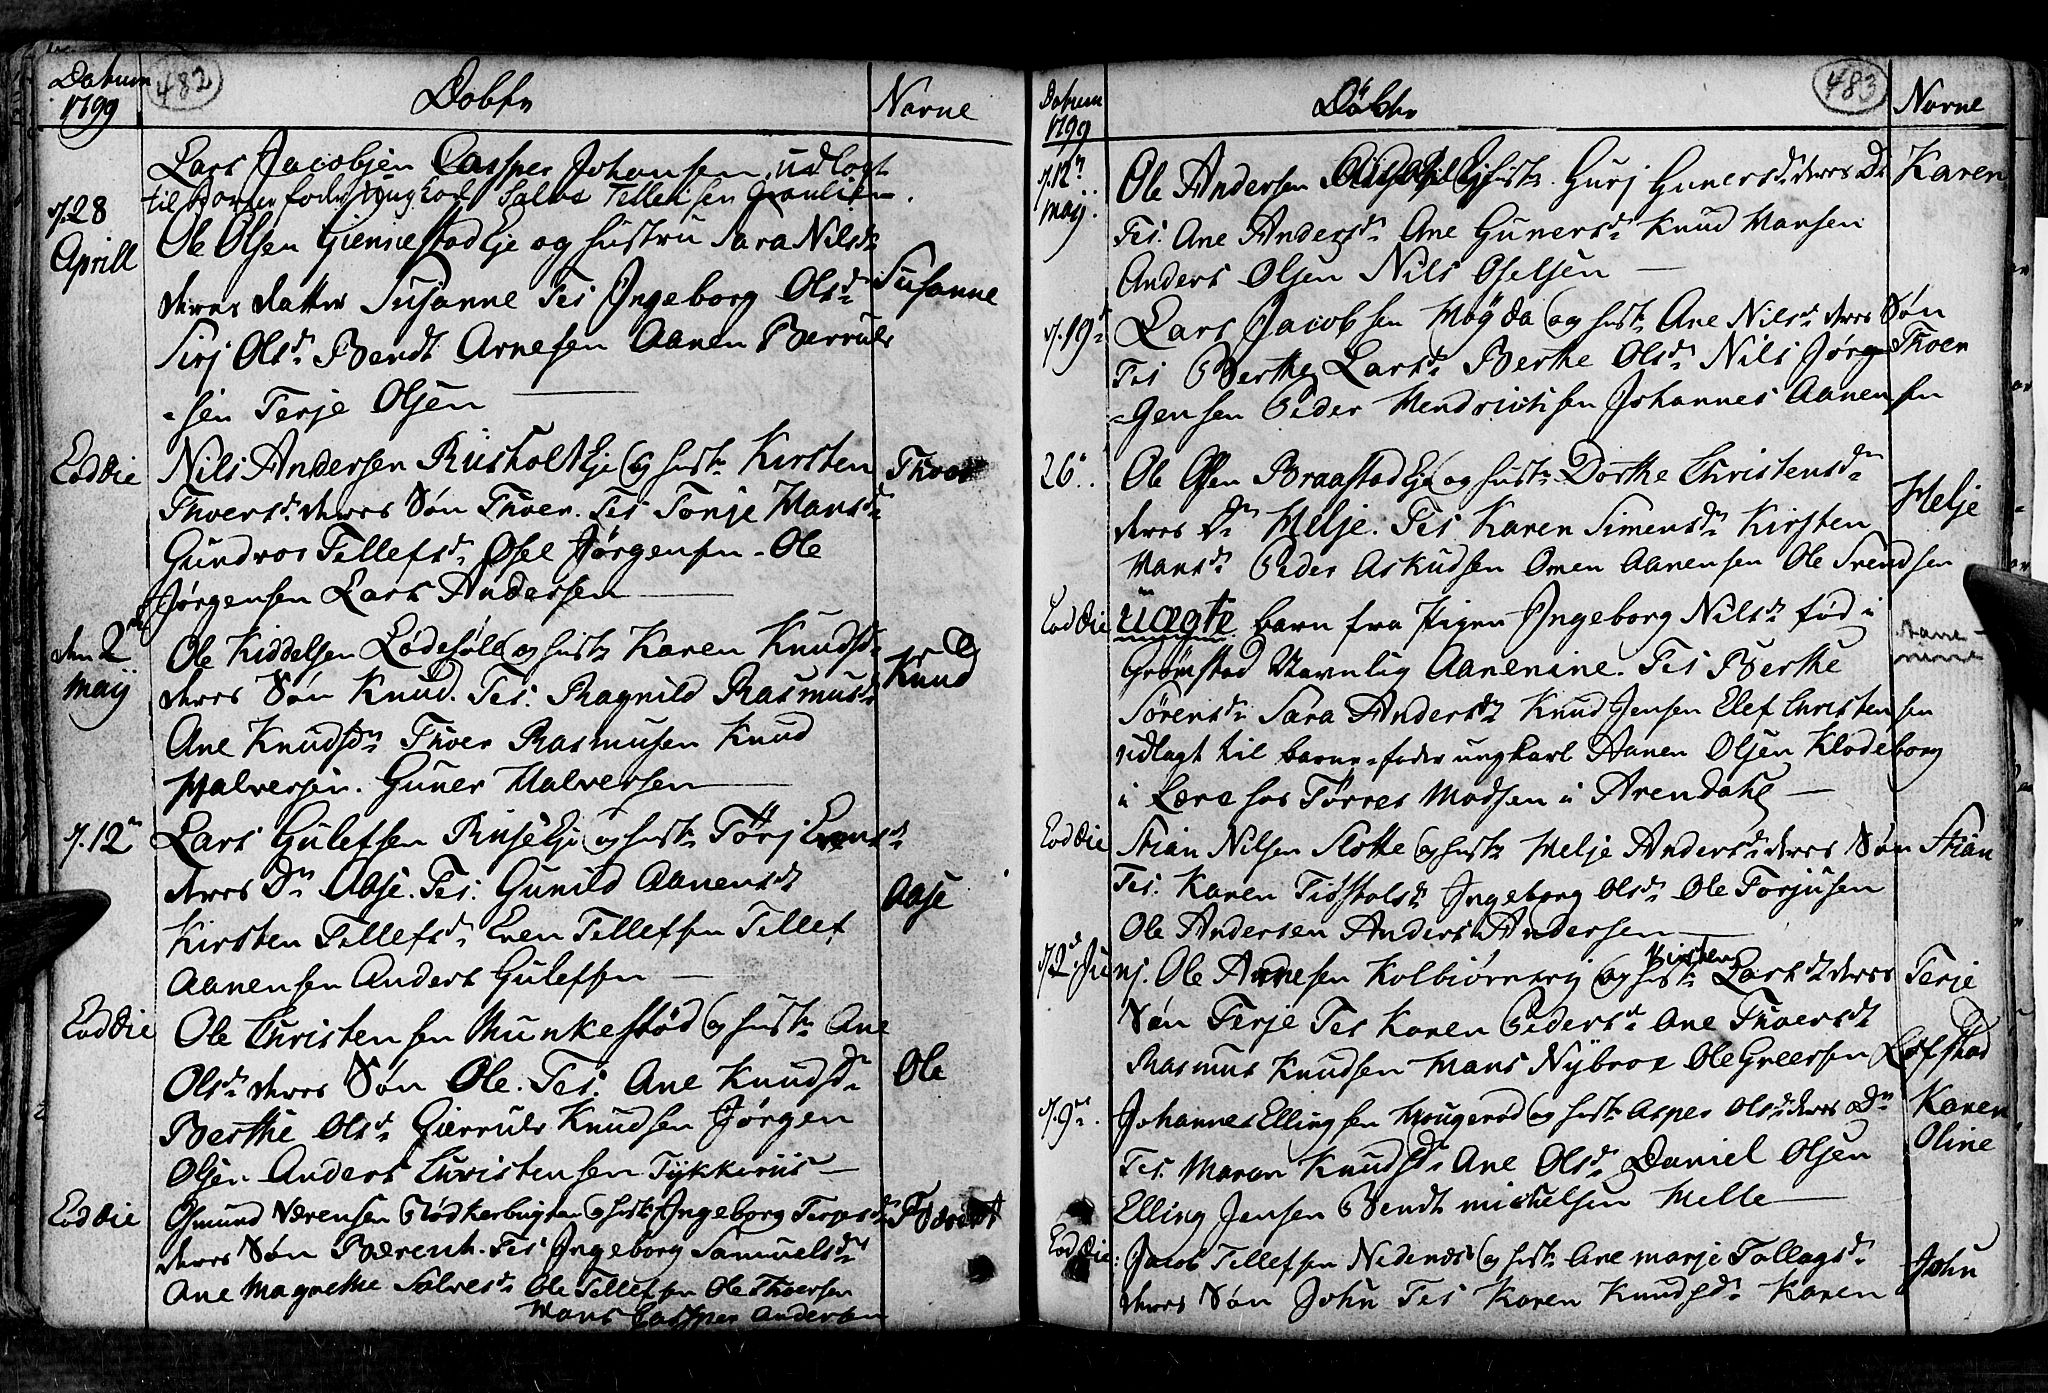 Datum
1799
482
Dobte
Navne
Lars Jacobsen Casper Johansen udlagt
til barne fader ungkarl Salve Tellefsen
d. 28
Aprill
Ole Olsen Giennestad Eje og hustru Sara Nilsdr
deres datter Susanne Tes Ingeborg Olsdr
Susanne
Sirj Olsdr Bendt Arnesen Aanen Berruls
-sen Terje Olsen
Eod Die
Nils Andersen Rüsholt Eje og hustr Kirsten
Thoer
Thoersdr deres Søn Thoer. Tes Tonje Hansdr
Gundroe Tellefsdr Osel Jørgensen - Ole
Jørgensen Lars Andersen
den 2
maij
Ole Kiddelsen Lødesøll og hustr Karen Knudsdr
Knud
deres Søn Knud. Tes. Ragnild Rasmusdr
Ane Knudsdr Thoer Rasmusen Knud
Halversen. Guner Halversen
d. 12
Lars Gulefsen Riise Eje og hustr Törj Evensdr
deres Dr Aase. Tes. Gunild Aanensdr
Aase
Kirsten Tellefsdr Even Tellefsen Tellef
Aanensen Anders Gulefsen
Eod Die
Ole Christensen Munkestød og hustr Ane
Olsdr deres Søn Ole. Tes. Ane Knudsdr
Ole
Berthe Olsdr Gierruls Knudsen Jørgen
Olsen Anders Christensen Tykkeriis
Eod Die
Osmund Nærensen Rødkerbugten og hustr Ingeborg Terjesdr
deres Søn Bærent. Tes Ingeborg Samuelsdr
Ane Magrethe Salvesdr Ole Tellefsen Ole Thoersen
Hans Casper Andersen
Datum
1799
Döbte
483
Navne
d. 12
maij.
Ole Andersen hustr. Gurj Gunersdr deres Dr
Karen
Tes. Ane Andersdr Ane Gunersdr Knud Hansen
Anders Olsen Nils Oselsen
d. 19
Lars Jacobsen Høgda og hustr Ane Nilsdr deres Søn
Thoer
Tes Berthe Larsdr Berthe Olsdr Nils Jørg
-gensen Peder Hendrichsen Johannes Aanensen
26
Ole Olsen Braastad Eje og hustr Dorthe Christensdr
Helje
deres Dr Helje. Tes Karen Simensdr Kirsten
Hansdr Peder Askudsen Omen Aanensen Ole Svendsen
Eod Die
uægte barn fra Pigen Ingeborg Nilsdr fød i
Aane-
nine
Grømstad Navnlig Aanenine. Tes Berthe
Sørensdr Sara Andersdr Knud Jensen Elef Christensen
udlagt til barne-fader ungkarl Aanen Olsen Klodeborg
i Lære hos Tørres Madsen i Arendahl
Eod Die
Stian Nilsen Slotte og hustr Helje Andersdr deres Søn
Stian
Tes. Karen Tiøstolsdr Ingeborg Olsdr Ole Torjusen
Ole Andersen Anders Andersen
d. 2 Junj.
Ole Arnesen Kolbiørnsvig og hustr Kirsten Larsdr deres
Terje
Søn Terje Tes Karen Pedersdr Ane Thoersdr
Rasmus Knudsen Hans Nÿbroe Ole Greersen Løfstad
d. 9
Johannes Ellingsen Hougerød og hustr Asper Olsdr deres Dr
Karen
Oline
Tes. Maren Knudsdr Ane Olsdr Daniel Olsen
Elling Jensen Bendt michelsen Helle
Eod Die:
Jacob Tellefsen Nedenæs og hustr Ane marje Tallagsdr
John
deres Søn John Tes Karen Knudsdr Karen